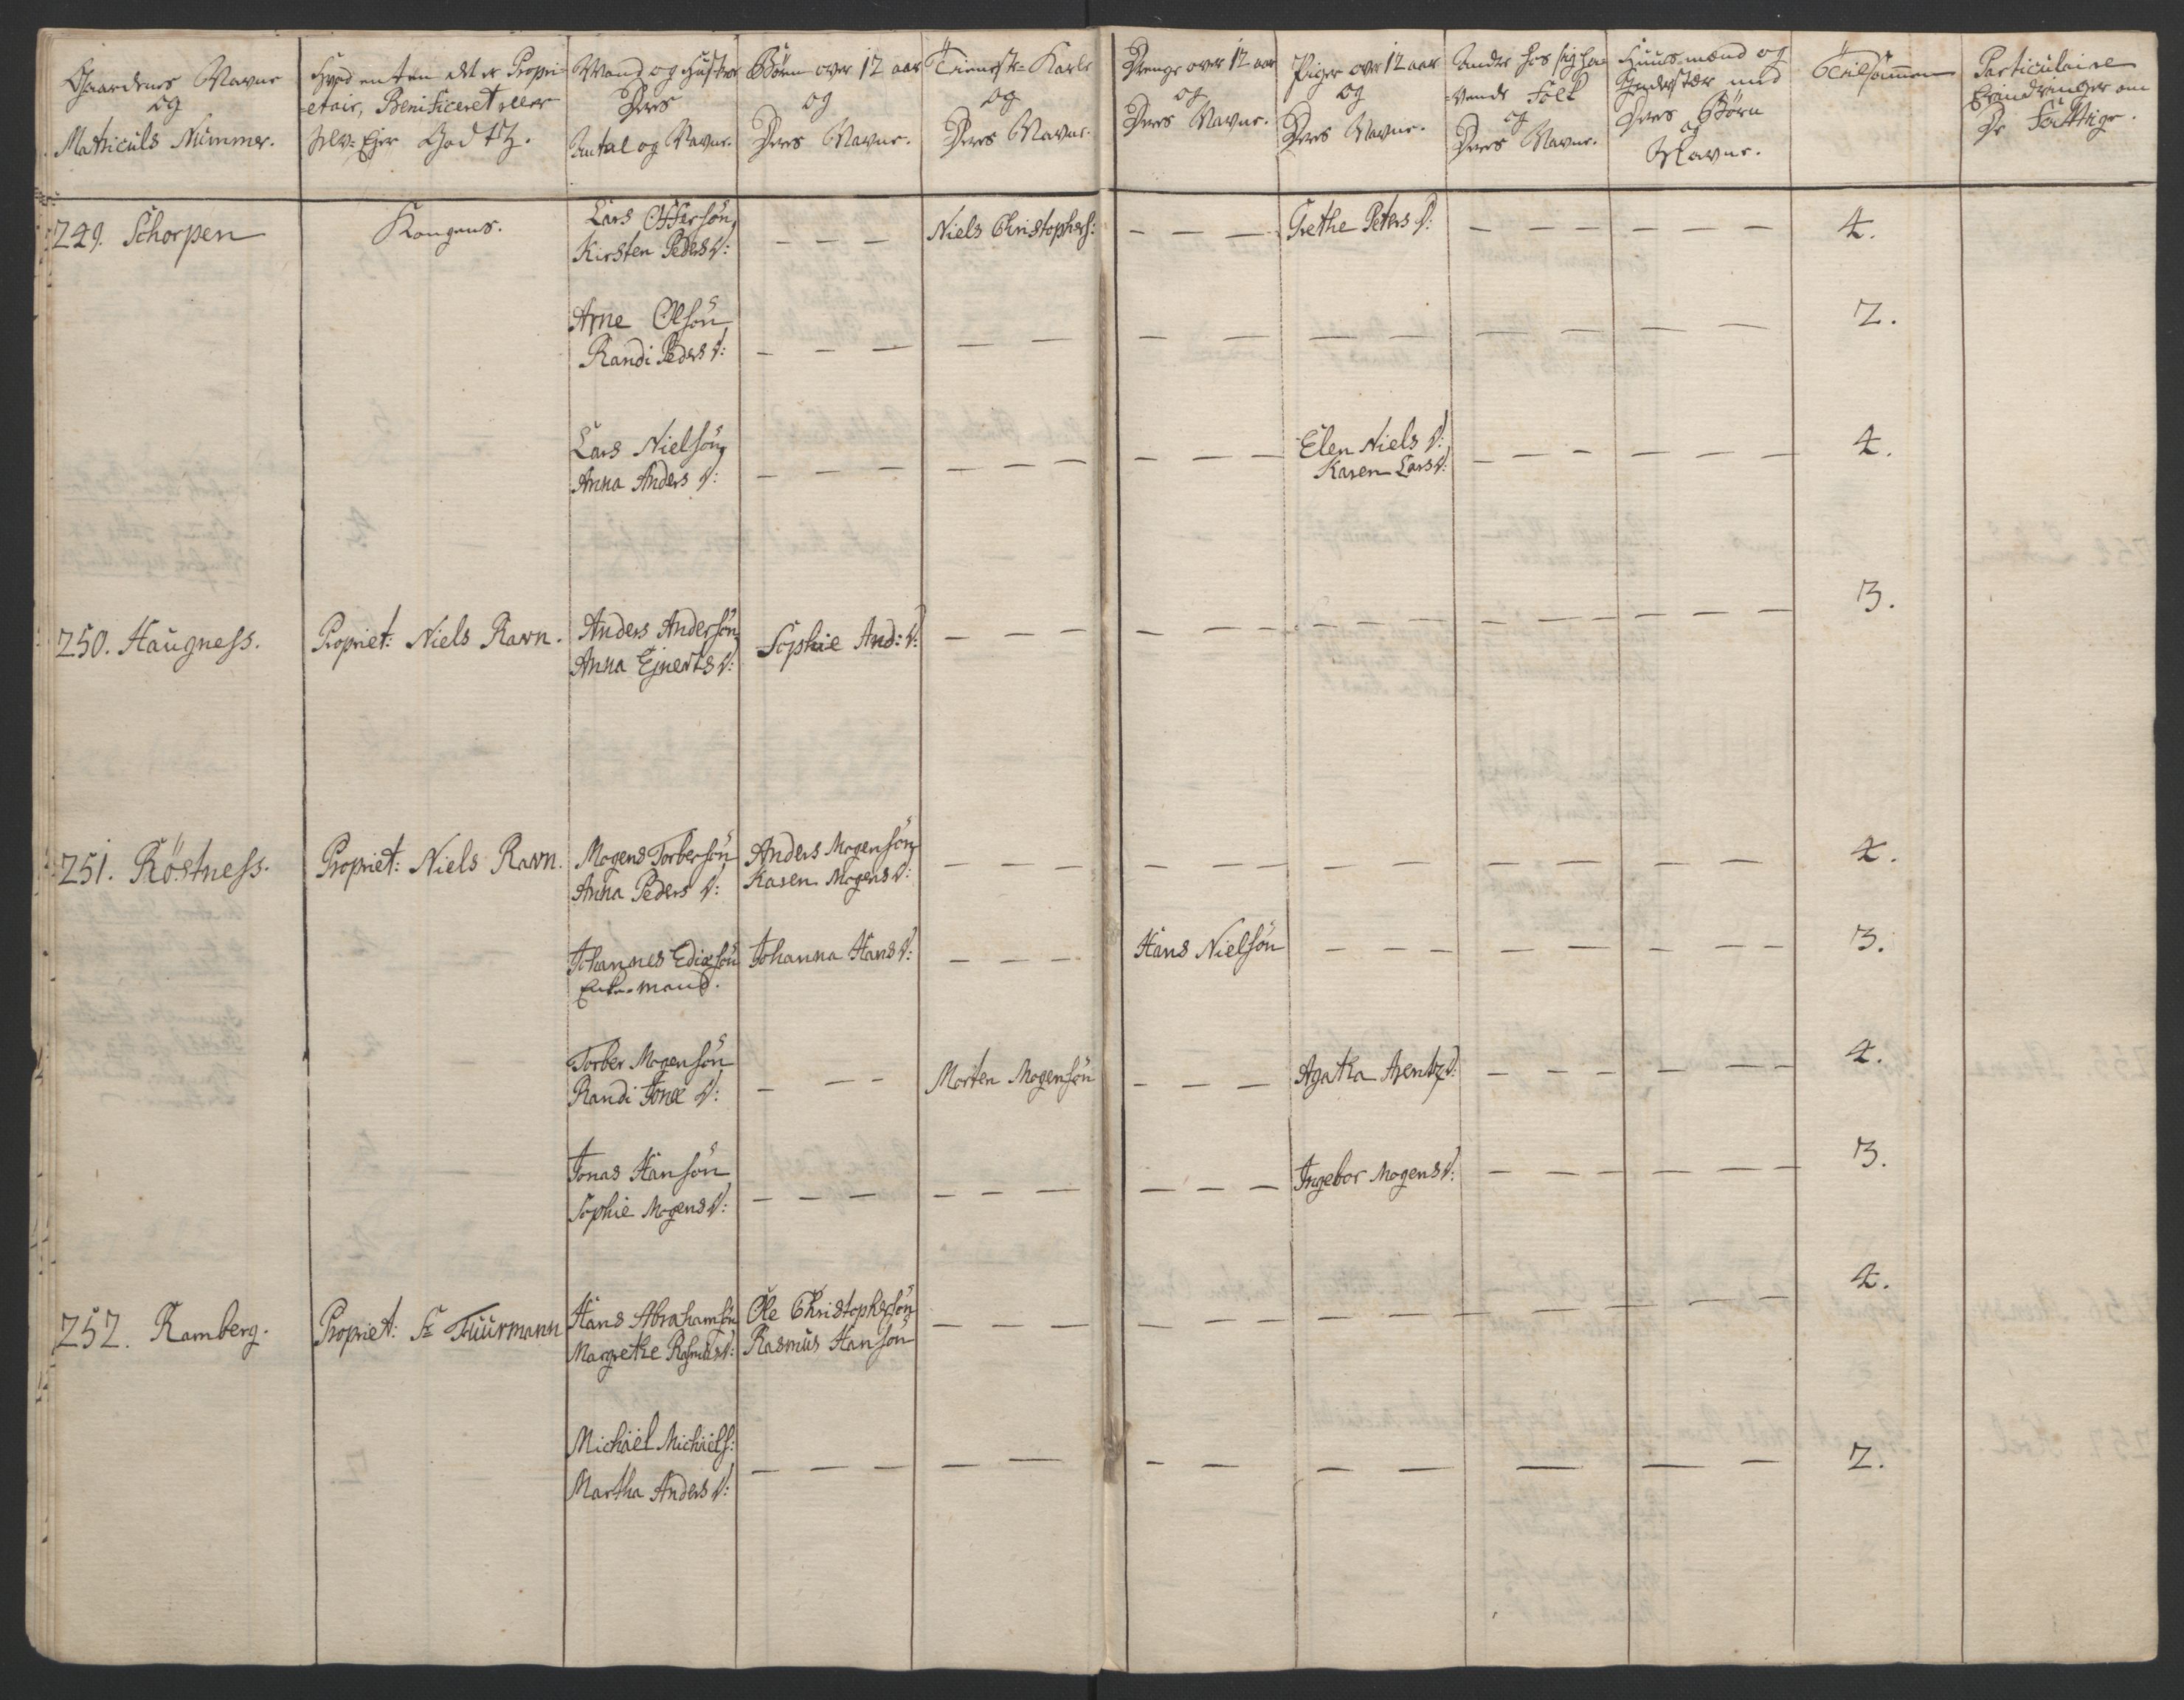 Gaardens Navne
og
Matriculs Nummer.
Hvad enten det er Propri-
etair, Beneficeret eller
Selv-Ejer Godtz.
Mand og Hustru
Deres
Antal og Navne.
Børn over 12 aar
og
Deres Navne.
Tieneste-Karle
og
Deres Navne.
Drenge over 12 aar
og
Deres Navne.
Piger over 12 aar
og
Deres Navne.
Andre hos sig ha-
vende Folk
og
Deres Navne.
Huusmænd og
med
Deres Børn
og
Navne.
Tilsammen
Particulaire
Erindringer om
De Fattige.
249. Schorpen
Kongens.
Lars Offersön,
Kirsten Peders D:
— — —
Niels Christophers:
— — —
Grethe Peters D:
— — — — — —
4.
Arne Olsön
Randi Peders D:
— — — — — — — — — — — —
2.
Lars Nielsön,
Anna Anders D:
— — — — — — — — —
Elen Niels D:
Karen Lars D:
— — — — — —
4.
250. Haugness.
Propriet: Niels Ravn.
Anders Andersön,
Anna Ejnerts D:
Sophie And: D:
— — — — — — — — — — — —
3.
251. Röstness.
Propriet: Niels Ravn.
Mogens Torbersön
Anna Peders D:
Anders Mogensön,
Karen Mogens D:
— — — — — — — — — — — —
4.
Johannes Edissön
Enke-mand.
Johanna Hans D:
— — —
Hans Nielsön
— — — — — — — — —
3.
Torber Mogensön
Randi Jonæ D:
— — —
Morten Mogensön
— — —
Agatha Arentz D:
— — — — — —
4.
Jonas Hansön
Sophie Mogens D:
— — — — — — — — —
Ingebor Mogens D:
— — — — — —
3.
252. Ramberg.
Propriet: Fuurmann
Hans Abrahamsön
Margrethe Rasmus D:
Ole Christophersön
Rasmus Hansön
— — — — — — — — — — — —
4.
Michäel Michäels:
Martha Anders D:
— — — — — — — — — — — —
2.